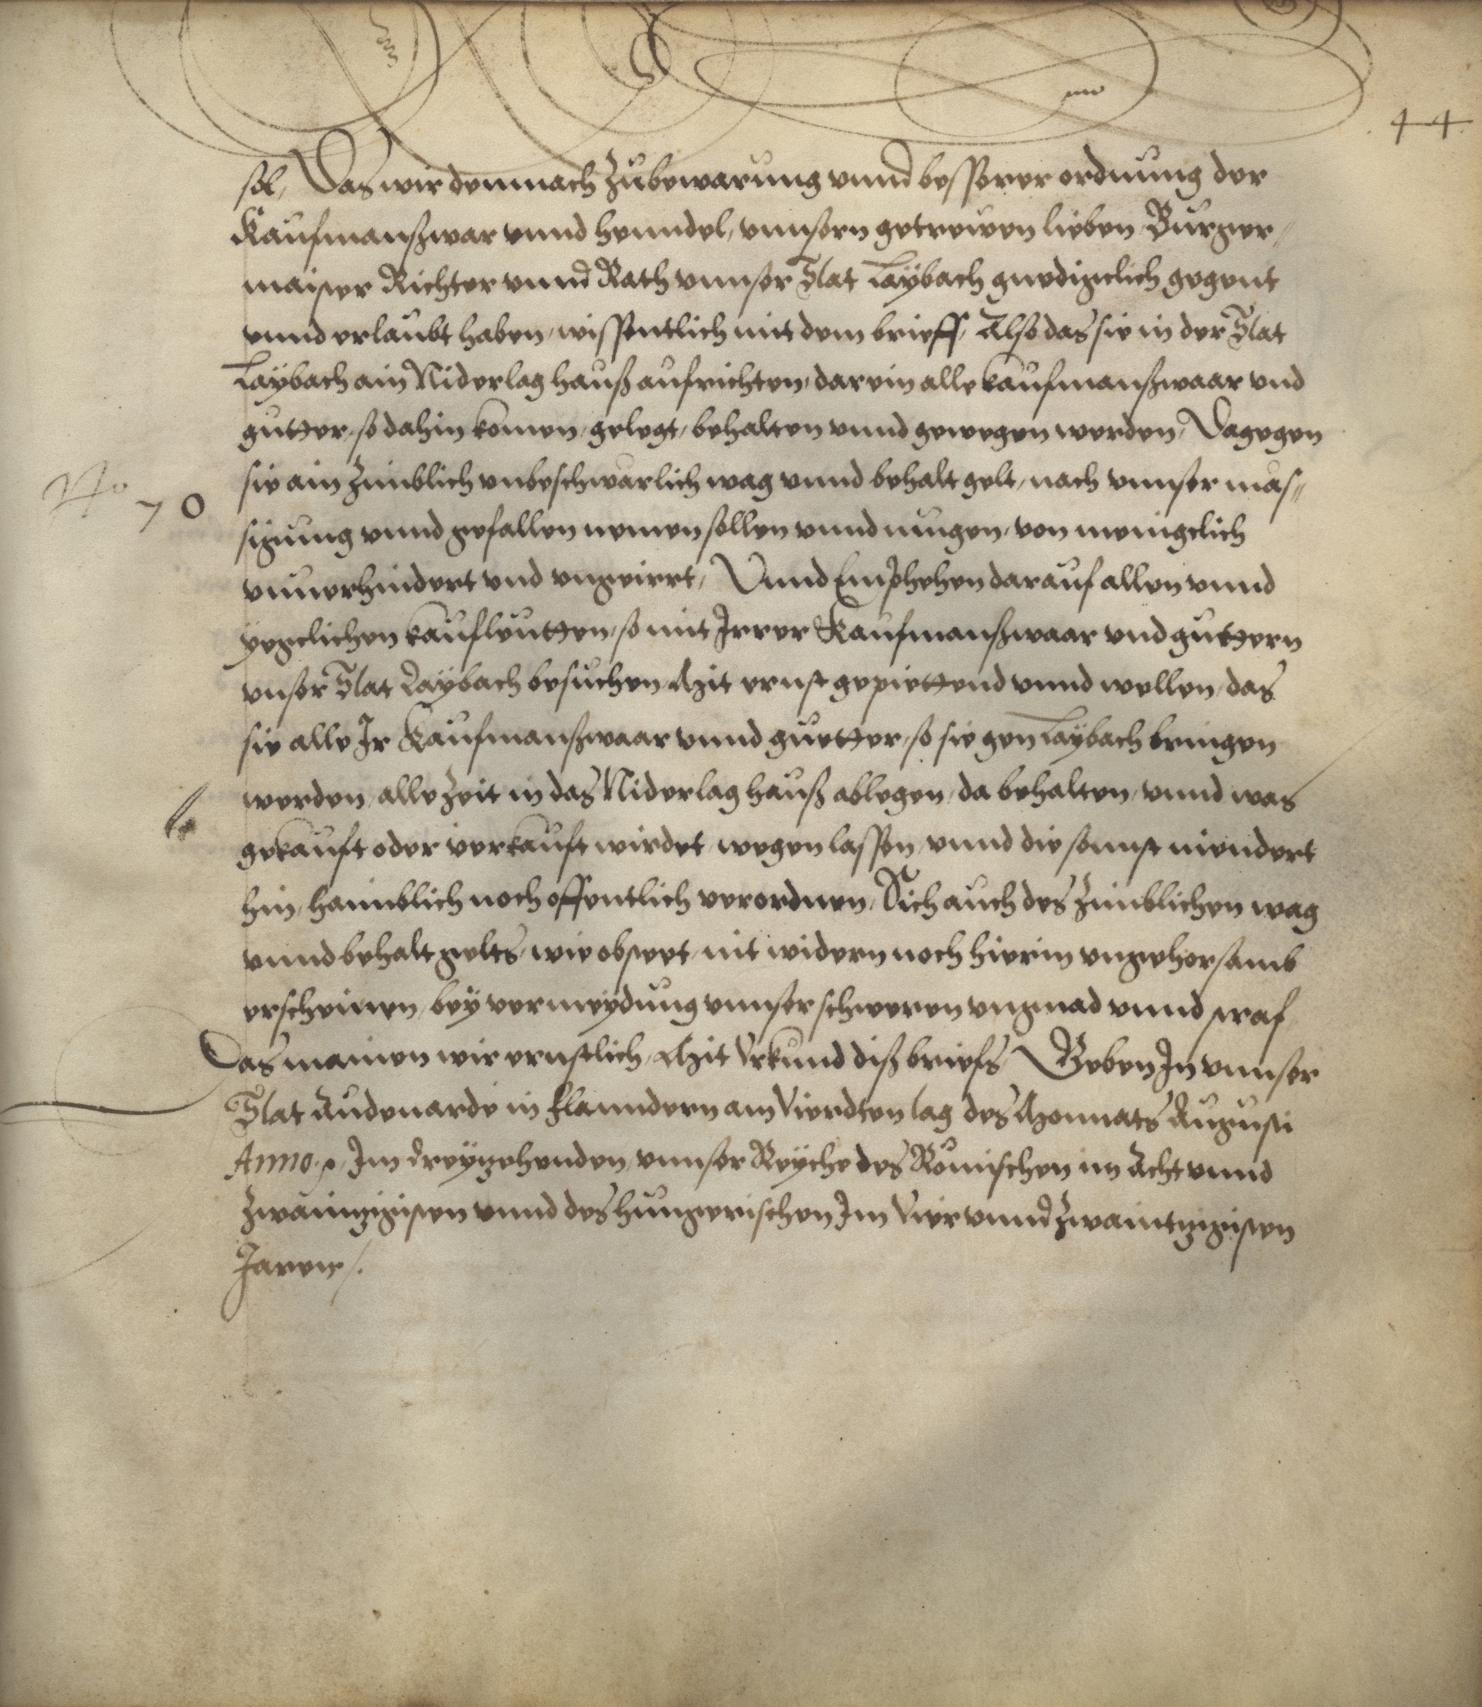 44
sol, Das wir demnach zubewarung vnnd besserer ordnung der
Kaufmanßwar vnnd henndel, vnnsern getrewen lieben Burger-
maister Richter vnnd Rath vnnser Stat Laÿbach gnedigclich gegent
vnnd erlaubt haben, wissentlich mit dem brieff, Also das sie in der Stat
Laÿbach ain Niderlag hauß aufrichten, darein alle kaufmanßwaar vnd
gutter, so dahin komen, gelegt, behalten vnnd gewegen werden, Dagegen
sie ain zimblich vnbeschwarlich wag vnnd behalt gelt, nach vnnser mas-
No 70
sigung vnnd gefallen nemen sollen vnnd mugen, von menigclich
vnuerhindert vnd vngeirrt, Vnnd Emphehen darauf allen vnnd
yegclichen kaufleutten, so mit Irer Kaufmanßwaar vnd guttern
vnser Stat Laÿbach besuchen Mit ernst gepiettend vnnd wellen, das
sie alle Ir Kaufmanßwaar vnnd guetter, so sie gen Laÿbach bringen
werden, alle zeit in das Niderlag hauß ablegen, da behalten, vnnd was
gekauft oder verkauft wirdet, wegen lassen, vnnd die sonnst niendert
hin, haimblich noch offentlich verordnen, Sich auch des zimblichen wag
vnnd behalt gelts, wie obsteet, nit widern noch hierin vngehorsamb
erscheinen, bey vermeydung vnnser schweren vngnad vnnd straf
Das mainen wir ernstlich, Mit Vrkund diß briefs Geben In vnnser
Stat Audenarde in flanndern am Vierdten tag des Monnats Augusti
Anno Im dreyzehenden, vnnser Reyche des Romischen im Acht vnnd
zwaintzigisten vnnd des hungerischen Im Vier vnnd zwaintzigisten
Jaren /.